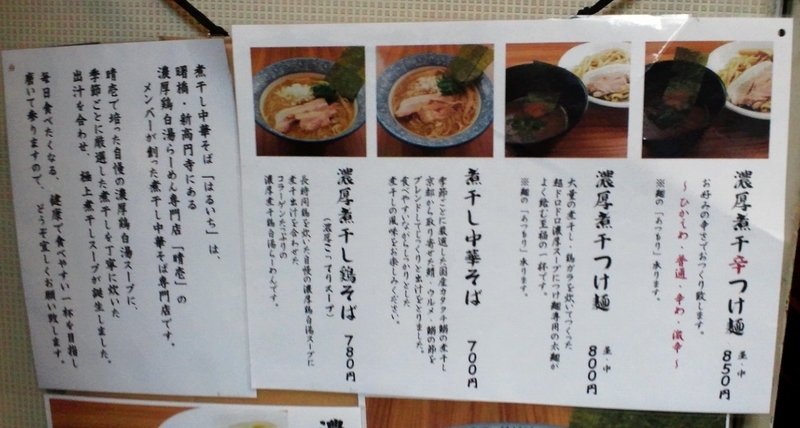 濃厚煮干辛つけ麺 並・中 850円
お好みの辛さでおつくり致します。
～ひかえめ・普通・辛め・激辛～
※麺の「あつもり」承ります。
濃厚煮干つけ麺 並・中 800円
大量の煮干し・鶏ガラを炊いてつくった
超ドロドロ濃厚スープにつけ麺専用の太麺が
よく絡む至福の一杯です。
※麺の「あつもり」承ります。
煮干し中華そば 700円
季節ごとに厳選した国産カタクチ鰯の煮干し
京都から取り寄せた鯖・ウルメ・鰯の節を
ブレンドしてじっくりと出汁をとりました。
食べやすいながらしっかりとした
煮干しの風味をお楽しみください。
濃厚煮干し鶏そば 780円
(濃厚こってりスープ)
長時間鶏を炊いた自慢の濃厚鶏白湯スープに
煮干出汁を合わせた、
コラーゲンたっぷりの
濃厚煮干鶏白湯らーめんです。
煮干し中華そば「はるいち」は、
曙橋・新高円寺にある
濃厚鶏白湯らーめん専門店「晴壱」の
メンバーが創った煮干し中華そば専門店です。
晴壱で培った自慢の濃厚鶏白湯スープに、
季節ごとに厳選した煮干しを丁寧に炊いた
出汁を合わせ、極上煮干しスープが誕生しました。
毎日食べたくなる、健康で食べやすい一杯を目指し
磨いて参りますので、どうぞ宜しくお願い致します。
濃